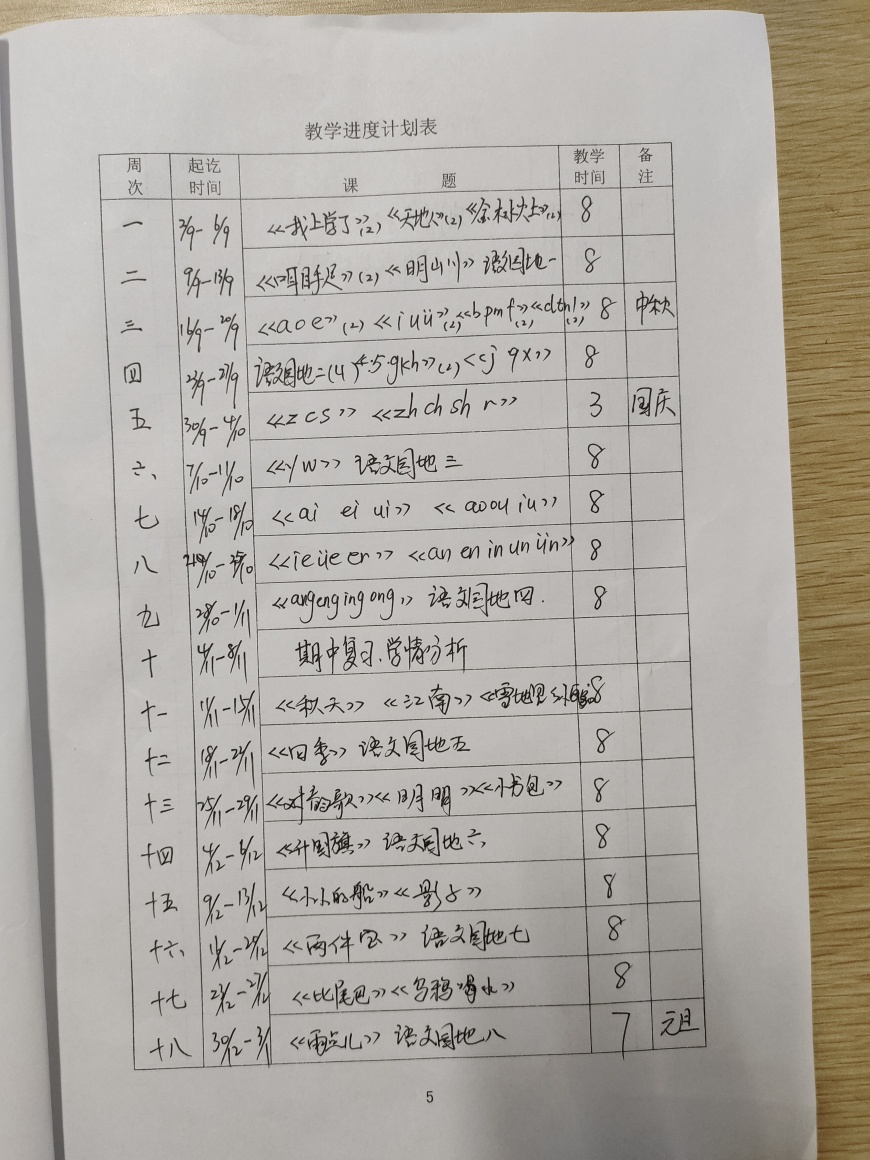 教学进度计划表
周次 起讫时间 课 题 教学时间 备注
一 2/9-6/9 《我上学了》(2) 《天地人》(2) 《金木水火土》(2) 8
二 9/9-13/9 《口耳手足》(2) 《日月山川》 语文园地一 8
三 16/9-20/9 《a o e》(2) 《i u ü》(2) 《b p m f》(2) 《d t n l》(2) 8 中秋
四 23/9-27/9 语文园地二(4) 4.5 g k h》(2) 《j q x》 8
五 30/9-4/10 《z c s》 《zh ch sh r》 3 国庆
六、 7/10-11/10 《y w》 语文园地三 8
七 14/10-18/10 《ai ei ui》 《ao ou iu》 8
八 /10-/10 《ie üe er》 《an en in un ün》 8
九 28/10-1/11 《ang eng ing ong》 语文园地四. 8
十 4/11-8/11 期中复习、学情分析
十一 11/11-15/11 《秋天》 《江南》 《雪地里 8
十二 18/11-2/11 《四季》 语文园地五 8
十三 25/11-29/11 《对韵歌》《日月明》《小书包》 8
十四 /12-6/12 《升国旗》 语文园地六、 8
十五 9/12-13/12 《小小的船》《影子》 8
十六、 1/12-2/12 《两件宝》 语文园地七 8
十七 23/12-27/12 《比尾巴》《乌鸦喝水》 8
十八 30/12-3/1 《雨点儿》 语文园地八 7 元旦
5